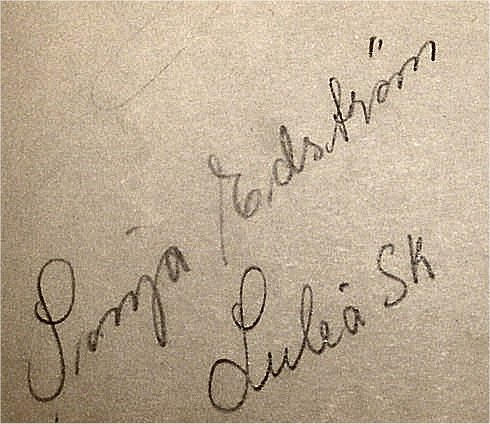 Sonja Edström
Luleå SK